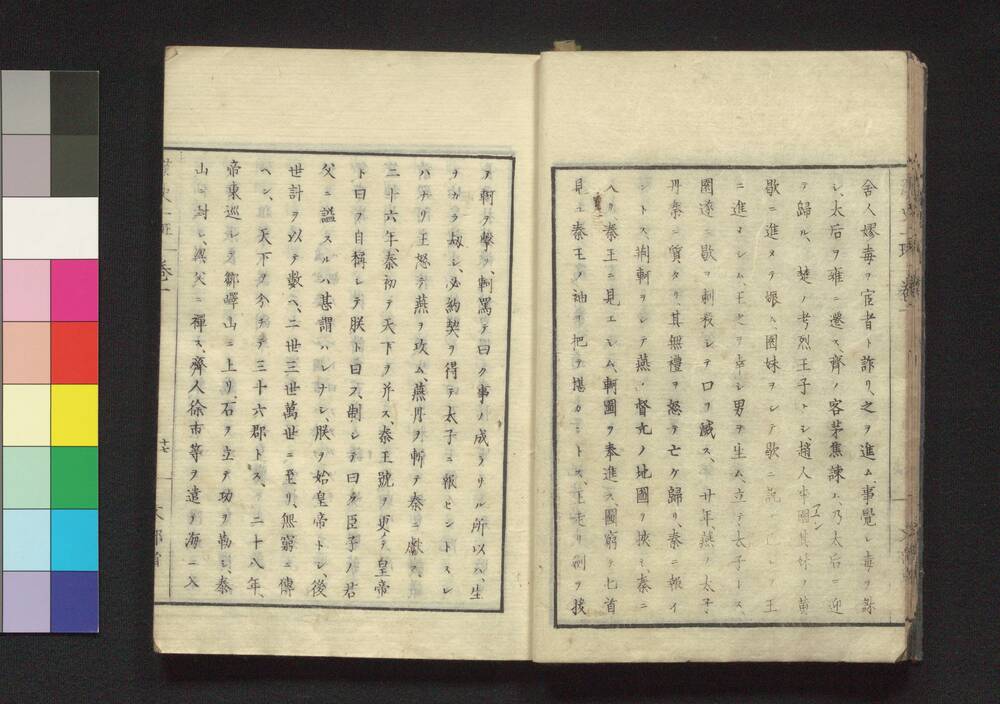 舍人嫪毐ヲ宦者ト詐リ、之ヲ進ム事覺レ毐ヲ誅
シ、太后ヲ雍ニ遷ス、齊ノ客茅焦諫ム、乃太后ニ迎
テ歸ル、楚ノ考烈王子ナシ、趙人李園其妹ヲ黄
歇ニ進メテ娠ム、園妹ヲシテ歇ニ説
ニ進マシム、王之ヲ幸シ男ヲ生ム、立テ太子トス、
園遂ニ歇ヲ刺殺シテ口ヲ滅ス、廿年燕ノ太子
丹秦ニ質タリ、其無禮ヲ怒テ亡ケ歸リ、秦ニ報イ
ントス、荊軻ヲシテ燕ノ督亢ノ地圖ヲ挾ミ、秦ニ
入リ、秦王ニ見エシム、軻圖ヲ奉進ス、圖窮テ七首
見ユ秦王ノ袖ヲ把テ揕カントス、王走リ劍ヲ拔
テ軻ヲ擊ツ、軻罵テ曰ク事ノ成ラサル所以ハ、生
ヲカラ劫シ、必約契ヲ得テ太子ニ報ヒントスレ
ハナリ王怒テ燕ヲ攻ム、燕丹ヲ斬テ秦ニ獻ス、
二十六年、秦初テ天下ヲ并ス、秦王號ヲ更テ皇帝
ト曰ヲ自稱シテ朕ト曰フ、制シテ曰ク臣子ノ君
父ニ謚スルハ甚謂ハレナシ、朕ヲ始皇帝トシ、後
世計ヲ以テ數ヘ、二世三世萬世ニ至リ、無窮ニ傳
ヘン、天下ヲ分チテ三十六郡トス、二十八年、
帝東巡シテ鄒嶧山ニ上リ、石ヲ立テ功ヲ勒シ、泰
山ニ封シ、梁父ニ禪ス、齊人徐市等ヲ遣テ海ニ入
卷一
十七
文部省